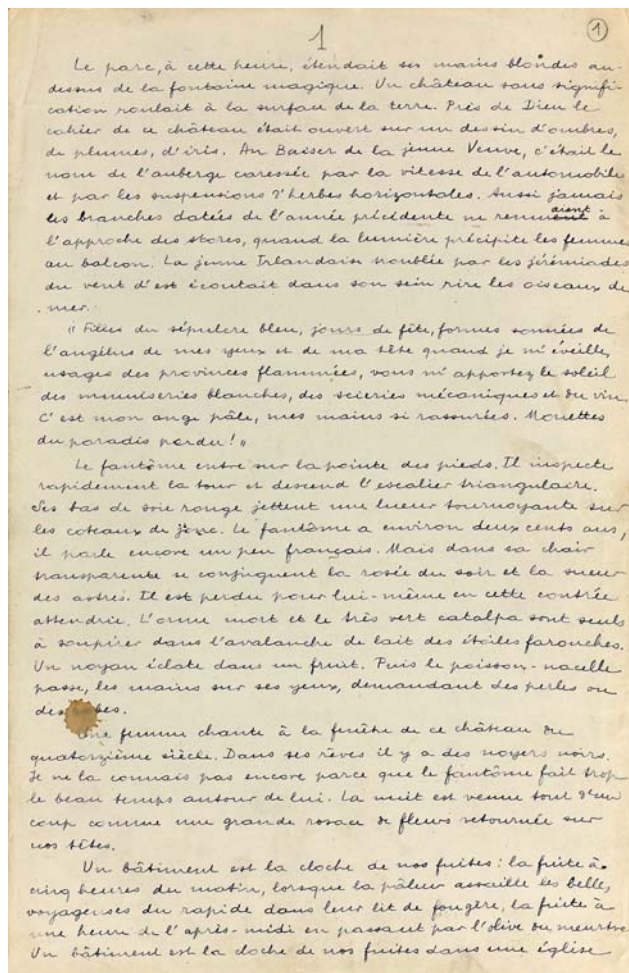 1
1
Le parc, à cette heure, étendait ses mains blondes au-
dessus de la fontaine magique. Un château sans signifi-
cation roulait à la surface de la terre. Près de Dieu le
cahier de ce château était ouvert sur un dessin d'ombres,
de plumes, d'iris. Au Baiser de la jeune Veuve, c'était le
nom de l'auberge caressée par la vitesse de l'automobile
et par les suspensions d'herbes horizontales. Aussi jamais
les branches datées de l'année précédente ne remuaient à
l'approche des stores, quand la lumière précipite les femmes
au balcon. La jeune Irlandaise troublée par les jérémiades
du vent d'est écoutait dans son sein rire les oiseaux de
mer.
"Filles du sépulcre bleu, jours de fête, formes sonnées de
l'angélus de mes yeux et de ma tête quand je m'éveille,
usages des provinces flammées, vous m'apportez le soleil
des menuiseries blanches, des scieries mécaniques et du vin.
C'est mon ange pâle, mes mains si rassurées. Mouettes
du paradis perdu!"
Le fantôme entre sur la pointe des pieds. Il inspecte
rapidement la tour et descend l'escalier triangulaire.
Ses bas de soie rouge jettent une lueur tournoyante sur
les coteaux de jonc. Le fantôme a environ deux cents ans,
il parle encore un peu français. Mais dans sa chair
transparente se conjuguent la rosée du soir et la sueur
des astres. Il est perdu pour lui-même en cette contrée
attendrie. L'orme mort et le très vert catalpa sont seuls
à soupirer dans l'avalanche de lait des étoiles farouches.
Un noyau éclate dans un fruit. Puis le poisson-nacelle
passe, les mains sur ses yeux, demandant des perles ou
des robes.
Une femme chante à la fenêtre de ce château du
quatorzième siècle. Dans ses rêves il y a des noyers noirs.
Je ne la connais pas encore parce que le fantôme fait trop
le beau temps autour de lui. La nuit est venue tout d'un
coup comme une grande rosace de fleurs retournée sur
nos têtes.
Un bâtiment est la cloche de nos fuites: la fuite à
cinq heures du matin, lorsque la pâleur assaille les belles
voyageuses du rapide dans leur lit de fougère, la fuite à
une heure de l'après-midi en passant par l'olive du meurtre.
Un bâtiment est la cloche de nos fuites dans une église